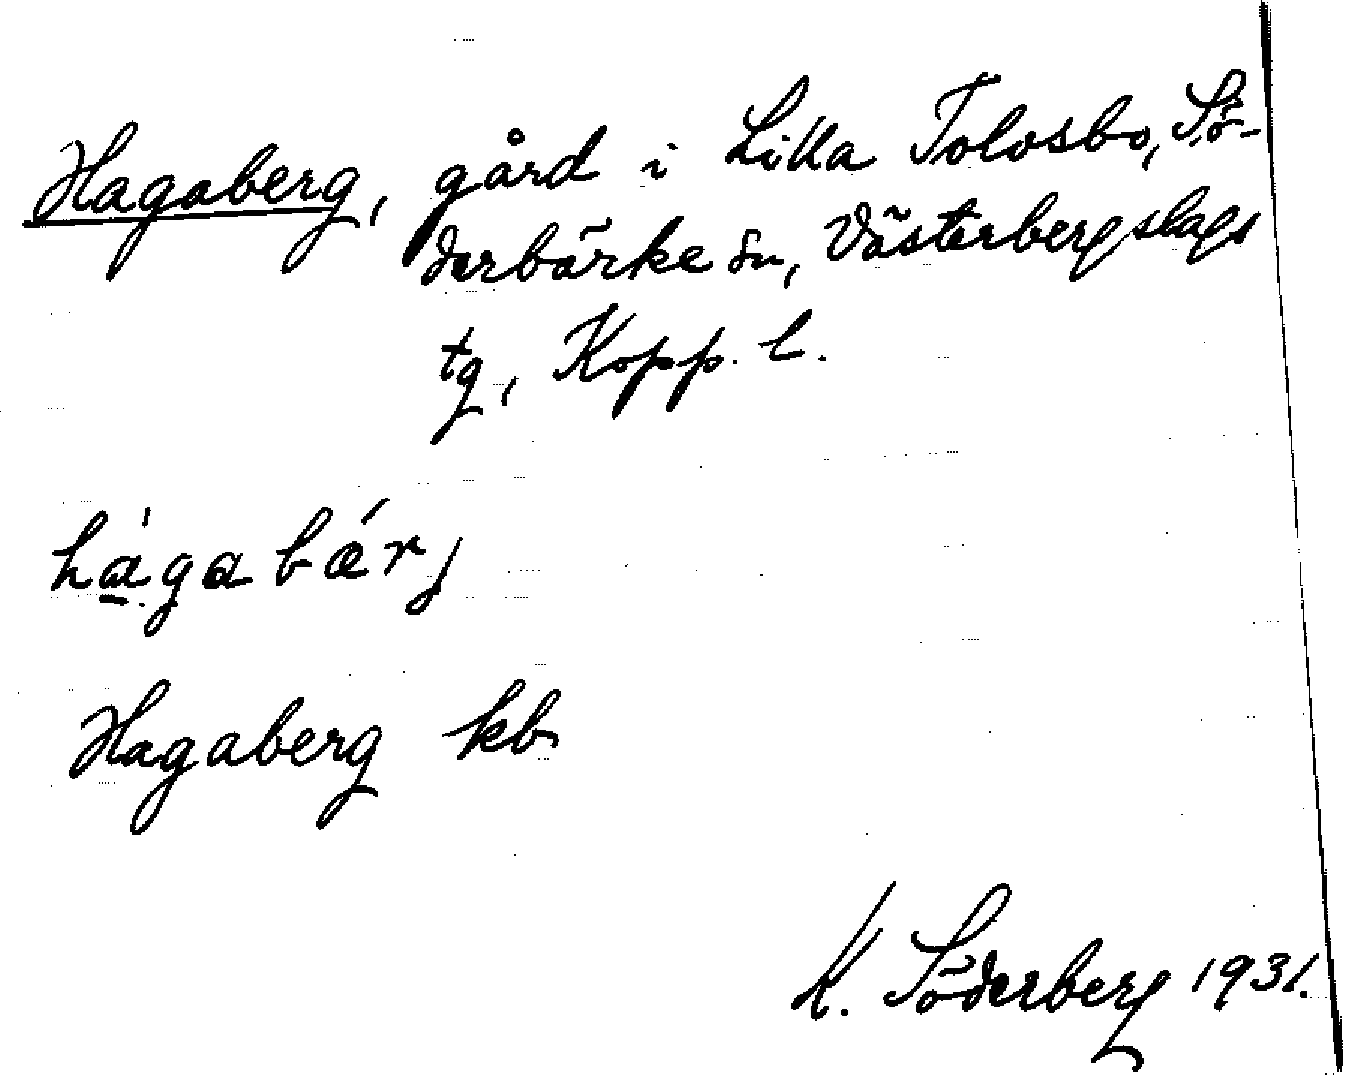 Hagaberg, gård i Lilla Tolvsbo, Sö-
derbärke sn, Västerbergslags
tg, Kopp. l.
hàgabǽrj
Hagaberg kb
K. Söderberg 1931.